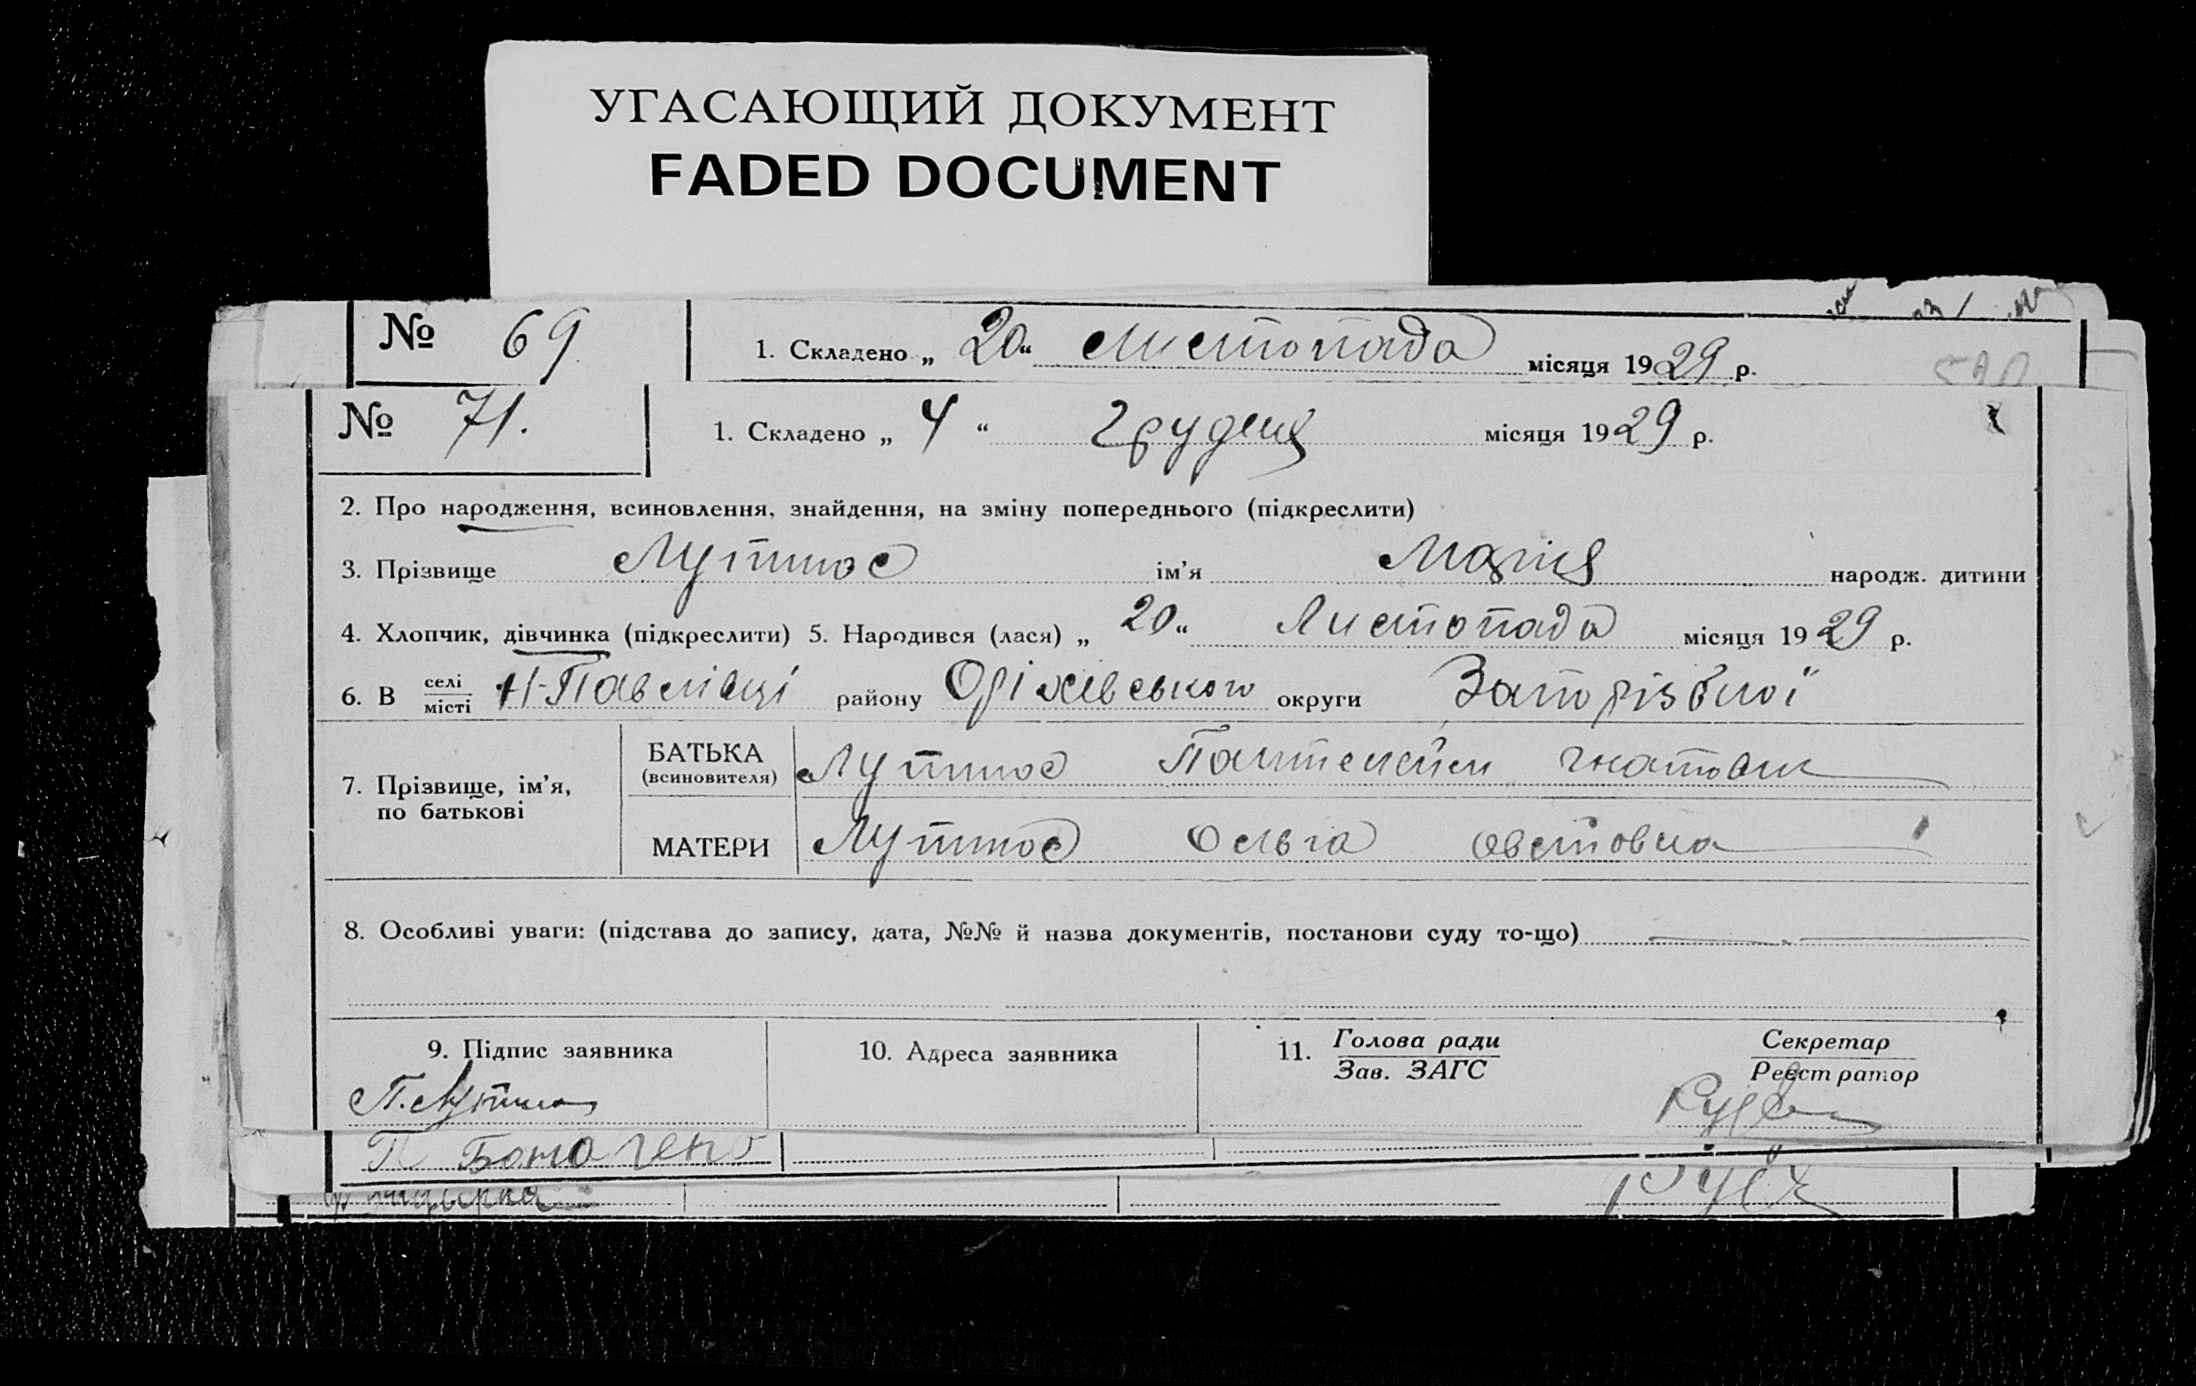 УГАСАЮЩИЙ ДОКУМЕНТ
FADED DOCUMENT
№ 69 1. Складено „ 20 “ Листопада місяця 1929 р.
№ 71. 1. Складено „ 4 “ Грудня місяця 1929 р.
2. Про народження, всиновлення, знайдення, на зміну попереднього (підкреслити)
3. Прізвище ім'я Марія народж. дитини
4. Хлопчик, дівчинка (підкреслити) 5. Народився (лася) „ 20 “ Листопада місяця 1929 р.
6. В селі місті Н-Павлівці району Оріхівського округи Запорізької
7. Прізвище, ім'я, по батькові
БАТЬКА (всиновителя) Пантелейм Гнатович
МАТЕРИ Ольга
8. Особливі уваги: (підстава до запису, дата, №№ й назва документів, постанови суду то-що)
9. Підпис заявника 10. Адреса заявника 11. Голова ради Секретар
Зав. ЗАГС Реєстратор